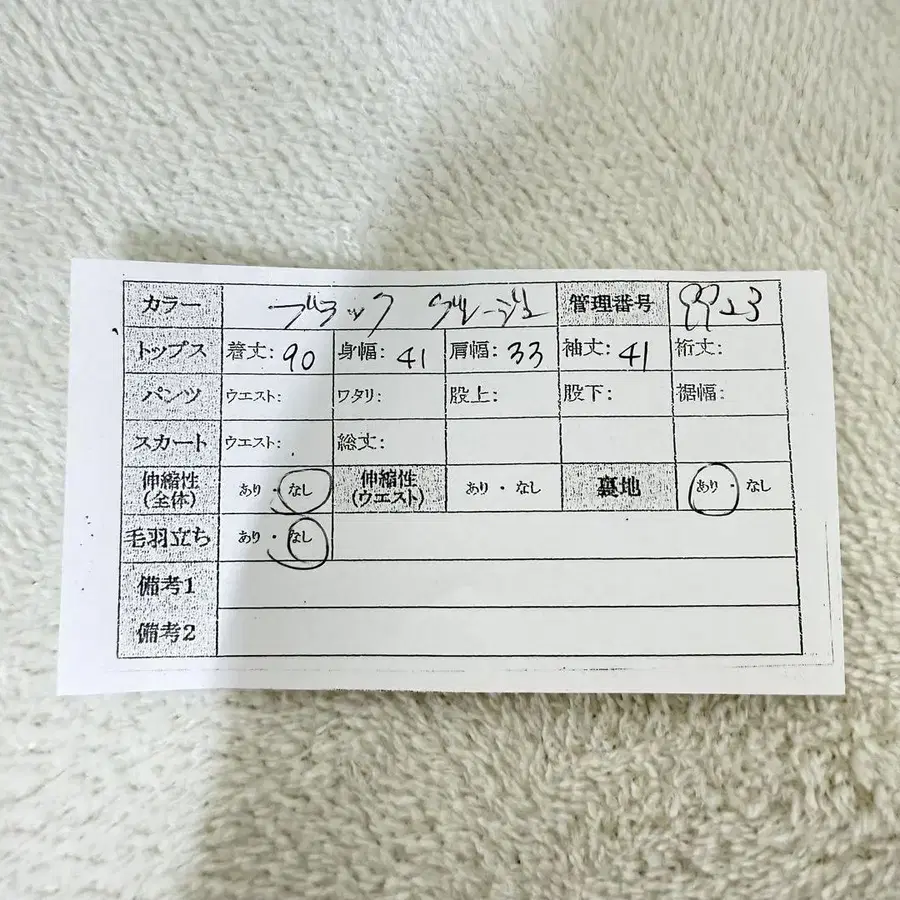 カラー ブラック グレージュ 管理番号 9923
トップス 着丈: 90 身幅: 41 肩幅: 33 袖丈: 41 裄丈:
パンツ ウエスト: ワタリ: 股上: 股下: 裾幅:
スカート ウエスト: 総丈:
伸縮性(全体) あり・なし 伸縮性(ウエスト) あり・なし 裏地 あり・なし
毛羽立ち あり・なし
備考1
備考2